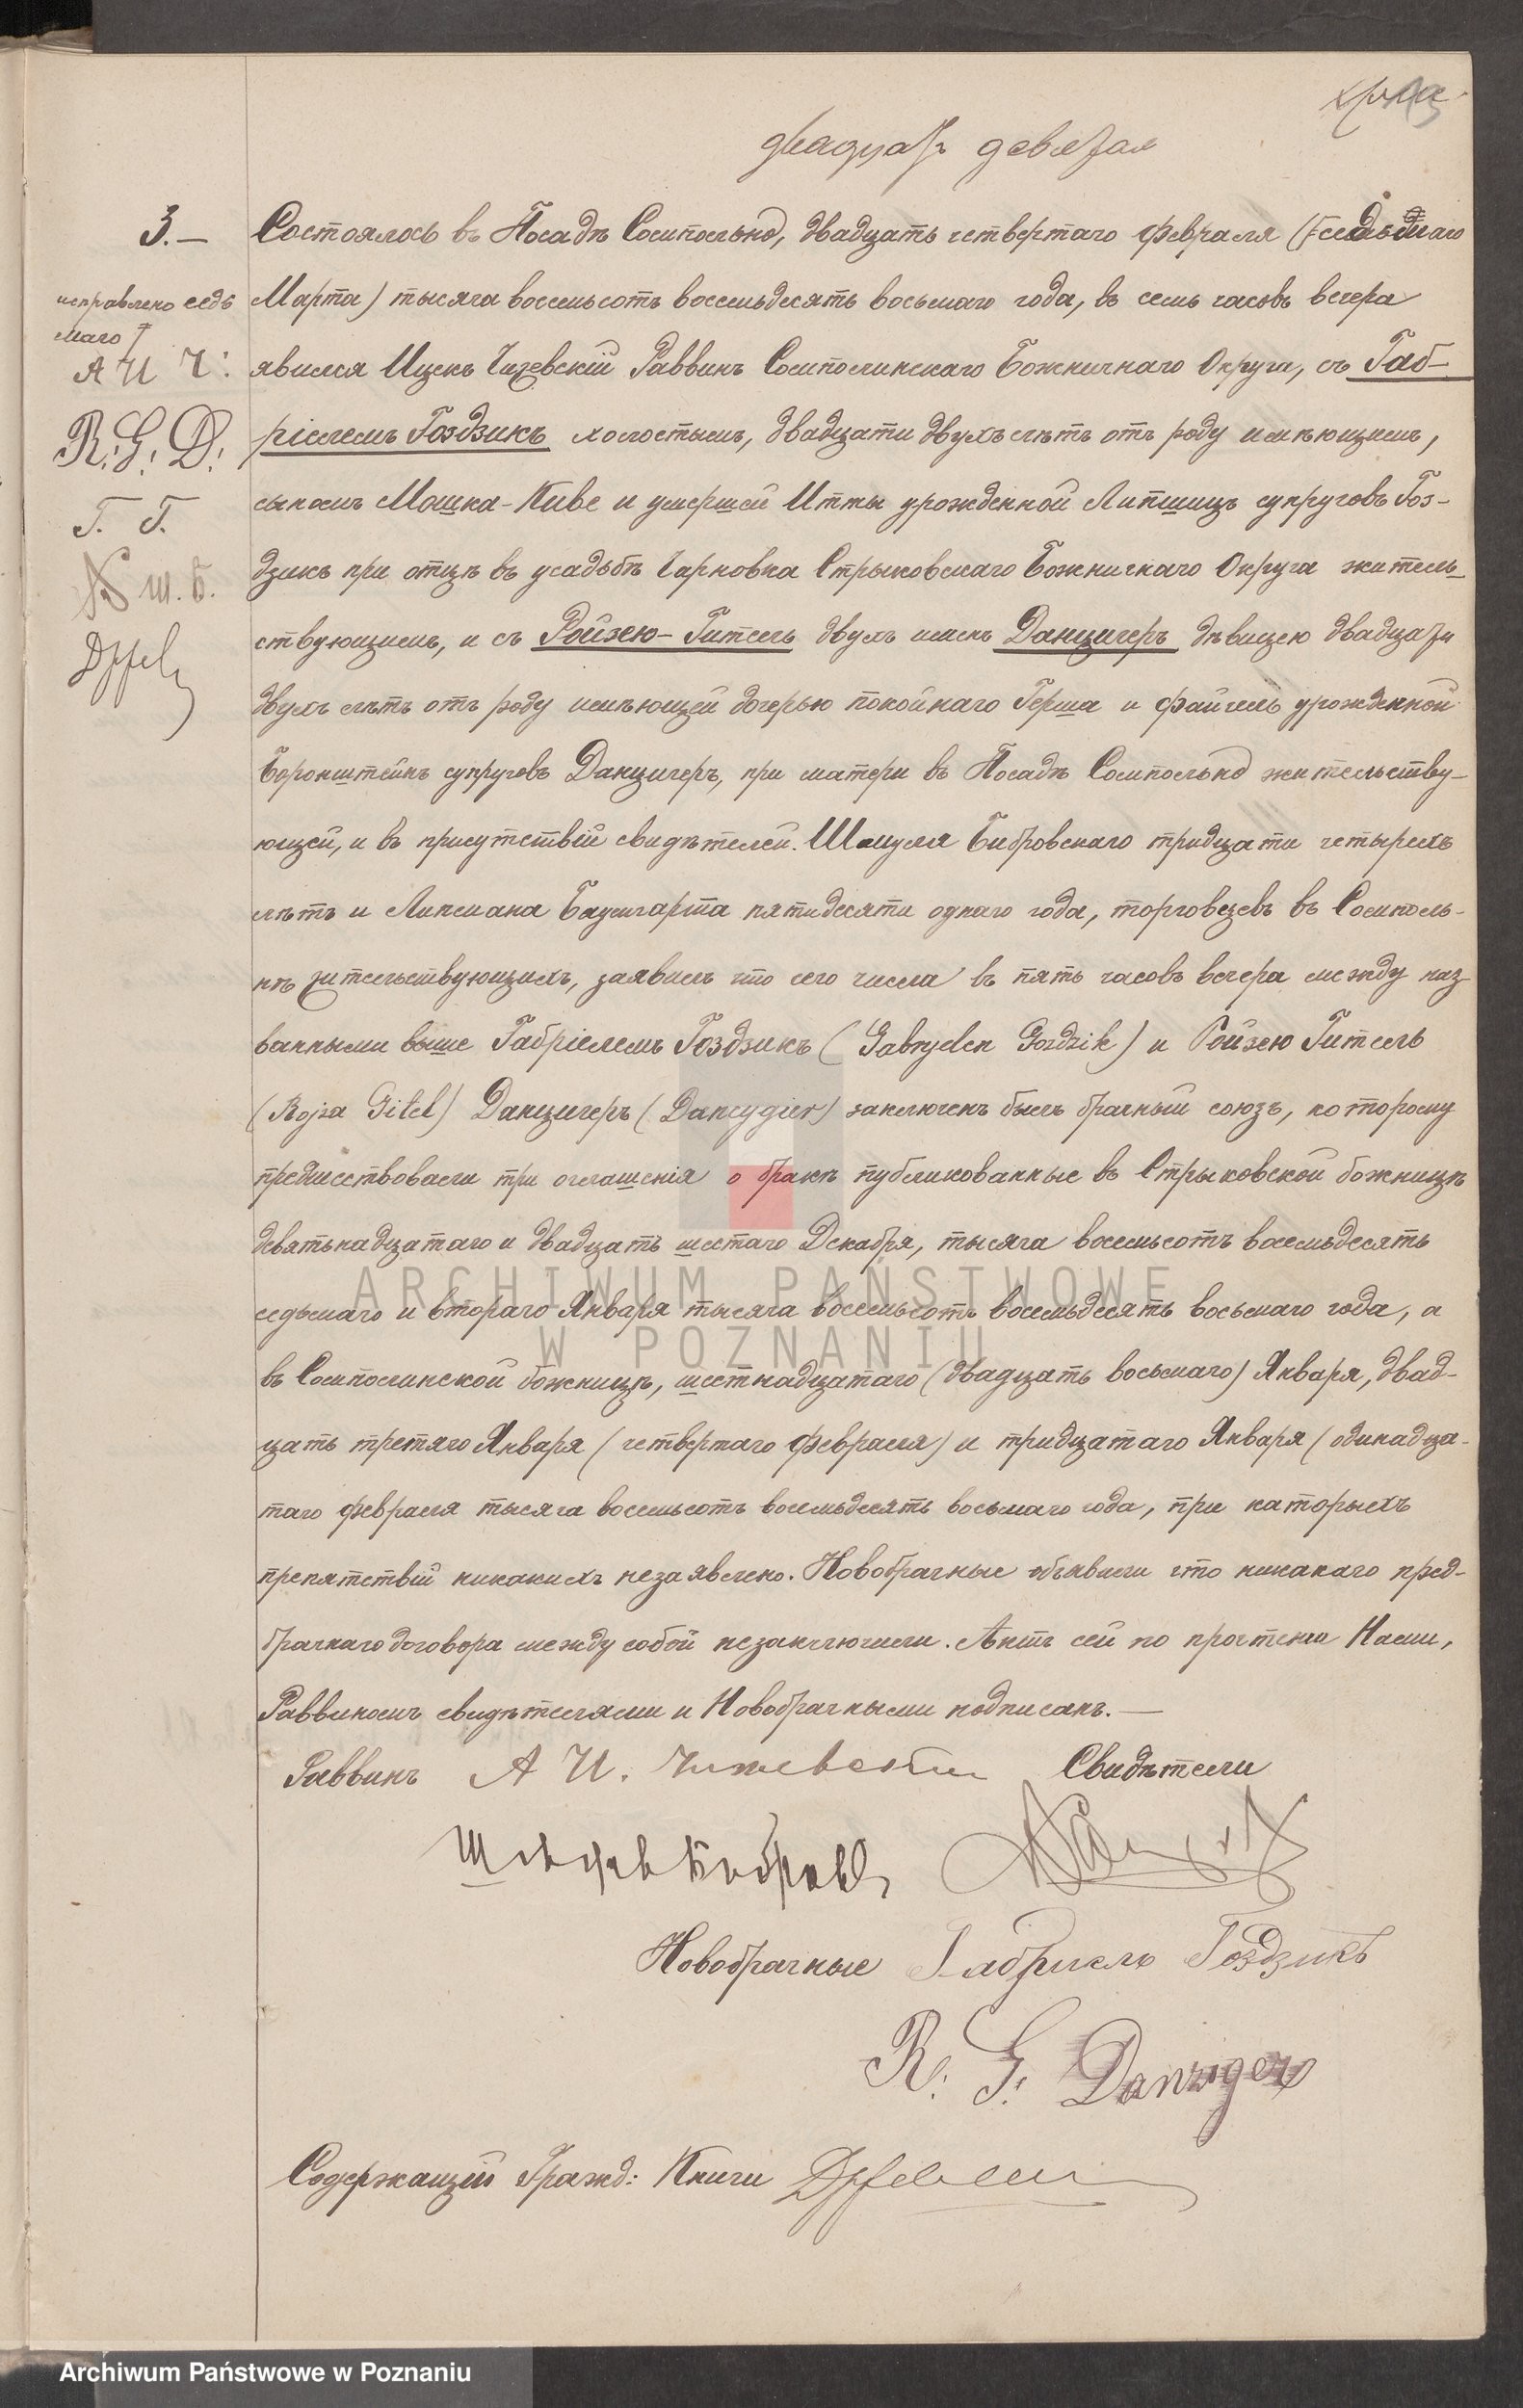 двадцать девятая
3.—
Состоялось въ Посадѣ Сомпольно, двадцать четвертаго Февраля (седьмаго
Марта) тысяча восемьсотъ восемьдесять восьмаго года, въ семь часовъ вечера
явился Ицекъ Чижевскій Раввинъ Сомполинскаго Божничнаго Округа, съ Габ-
ріелемъ Гоздзикъ холостымъ, двадцати двухъ лѣтъ отъ роду имѣющимъ,
сыномъ Мошка-Киве и умершей Итты урожденной Липшицъ супруговъ Гоз-
дзикъ при отцѣ въ усадьбѣ Чарновка Стрыковскаго Божничнаго Округа житель-
ствующимъ, и съ Ройзею-Гитель двухъ именъ Данцигеръ дѣвицею двадцати
двухъ лѣтъ отъ роду имѣющей дочерью покойнаго Герша и Файгель урожденной
Боронштейнъ супруговъ Данцигеръ, при матери въ Посадѣ Сомпольно жительству-
ющей, и въ присутствіи свидѣтелей. Шмуля Бибровскаго тридцати четырехъ
лѣтъ и Липмана Баумгарта пятидесяти одного года, торговцевъ въ Сомполь-
нѣ жительствующихъ, заявилъ что сего числа въ пять часовъ вечера между наз-
ванными выше Габріелемъ Гоздзикъ (Gabryelen Gozdzik) и Ройзею Гитель
(Rojza Gitel) Данцигеръ (Dancygier) заключенъ былъ брачный союзъ, которому
предшествовали три оглашенія о бракѣ публикованные въ Стрыковской божницѣ
девятьнадцатаго и двадцать шестаго Декабря, тысяча восемьсотъ восемьдесять
седьмаго и втораго Января тысяча восемьсотъ восемьдесять восьмаго года, а
въ Сомполинской божницѣ, шестнадцатаго (двадцать восьмаго) Января, двад-
цать третяго Января (четвертаго Февраля) и тридцатаго Января (одинадца-
таго Февраля тысяча восемьсотъ восемьдесять восьмаго года, при каторыхъ
препятствій никакихъ незаявлено. Новобрачные объявили что никакаго пред-
брачнаго договора между собой незаключили. Актъ сей по прочтеніи Нами,
Раввиномъ свидѣтелями и Новобрачными подписанъ.—
исправлено седь
маго
А И Ч:
R: G: D:
Г. Г.
Ш. Б.
Раввинъ А И. Чижевскій Свидѣтели
Новобрачные Габриель Гоздзикъ
R: G: Danziger
Содержащій Гражд: Книги
ARCHIWUM PAŃSTWOWE
W POZNANIU
Archiwum Państwowe w Poznaniu